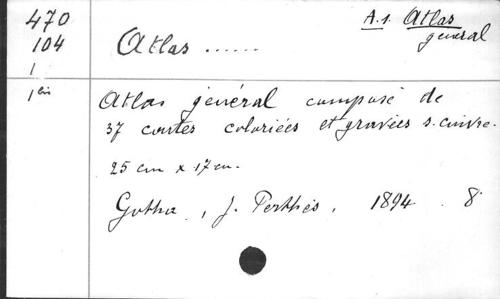 470
104
1
1 bis
A.1. Atlas
général
Atlas ......
Atlas général composé de
37 cartes coloriées et gravées s. cuivre.
25 cm x 17 cm.
Gotha, J. Perthes, 1894 8°